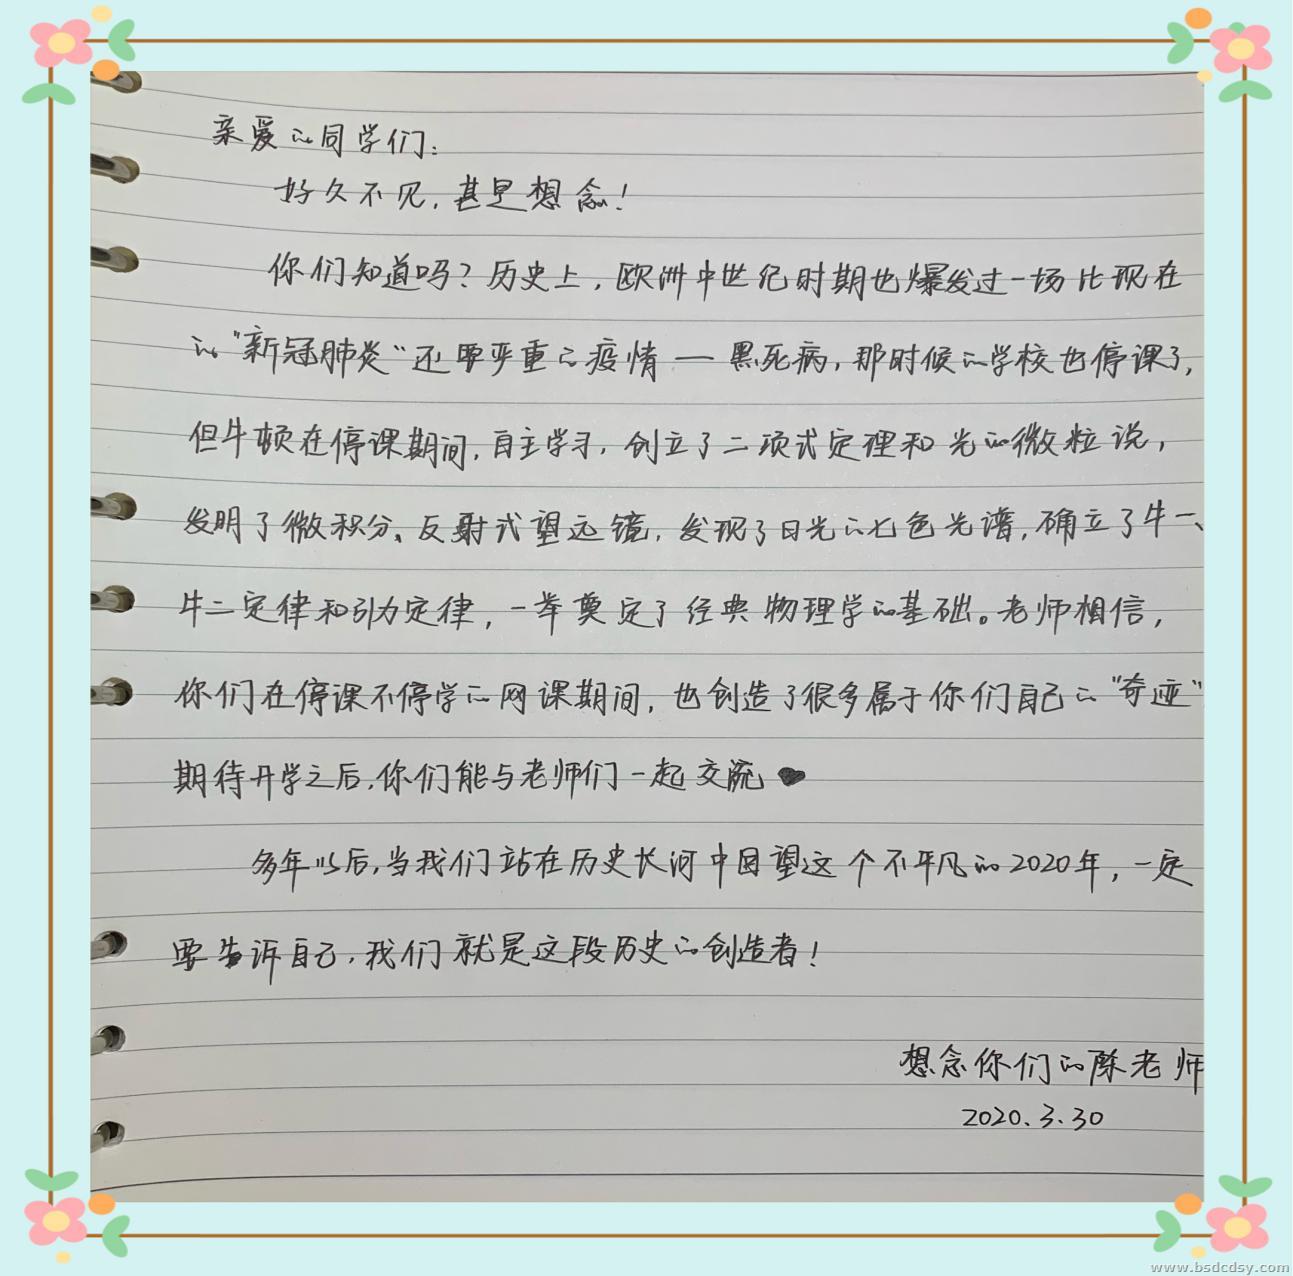 亲爱的同学们:
好久不见,甚是想念!
你们知道吗?历史上,欧洲中世纪时期也爆发过一场比现在
的“新冠肺炎“还要严重的疫情一黑死病,那时候的学校也停课了,
但牛顿在停课期间,自主学习,创立了二项式定理和光的微粒说,
发明了微积分、反射式望远镜,发现了日光的七色光谱,确立了牛一、
牛二定律和引力定律,一举奠定了经典物理学的基础。老师相信,
你们在停课不停学的网课期间,也创造了很多属于你们自己的“奇迹”
期待开学之后,你们能与老师们一起交流
多年以后,当我们站在历史长河中回望这个不平凡的2020年,一定
要告诉自己,我们就是这段历史的创造者!
想念你们的陈老师
2020.3.30
www.bsdcdsy.com